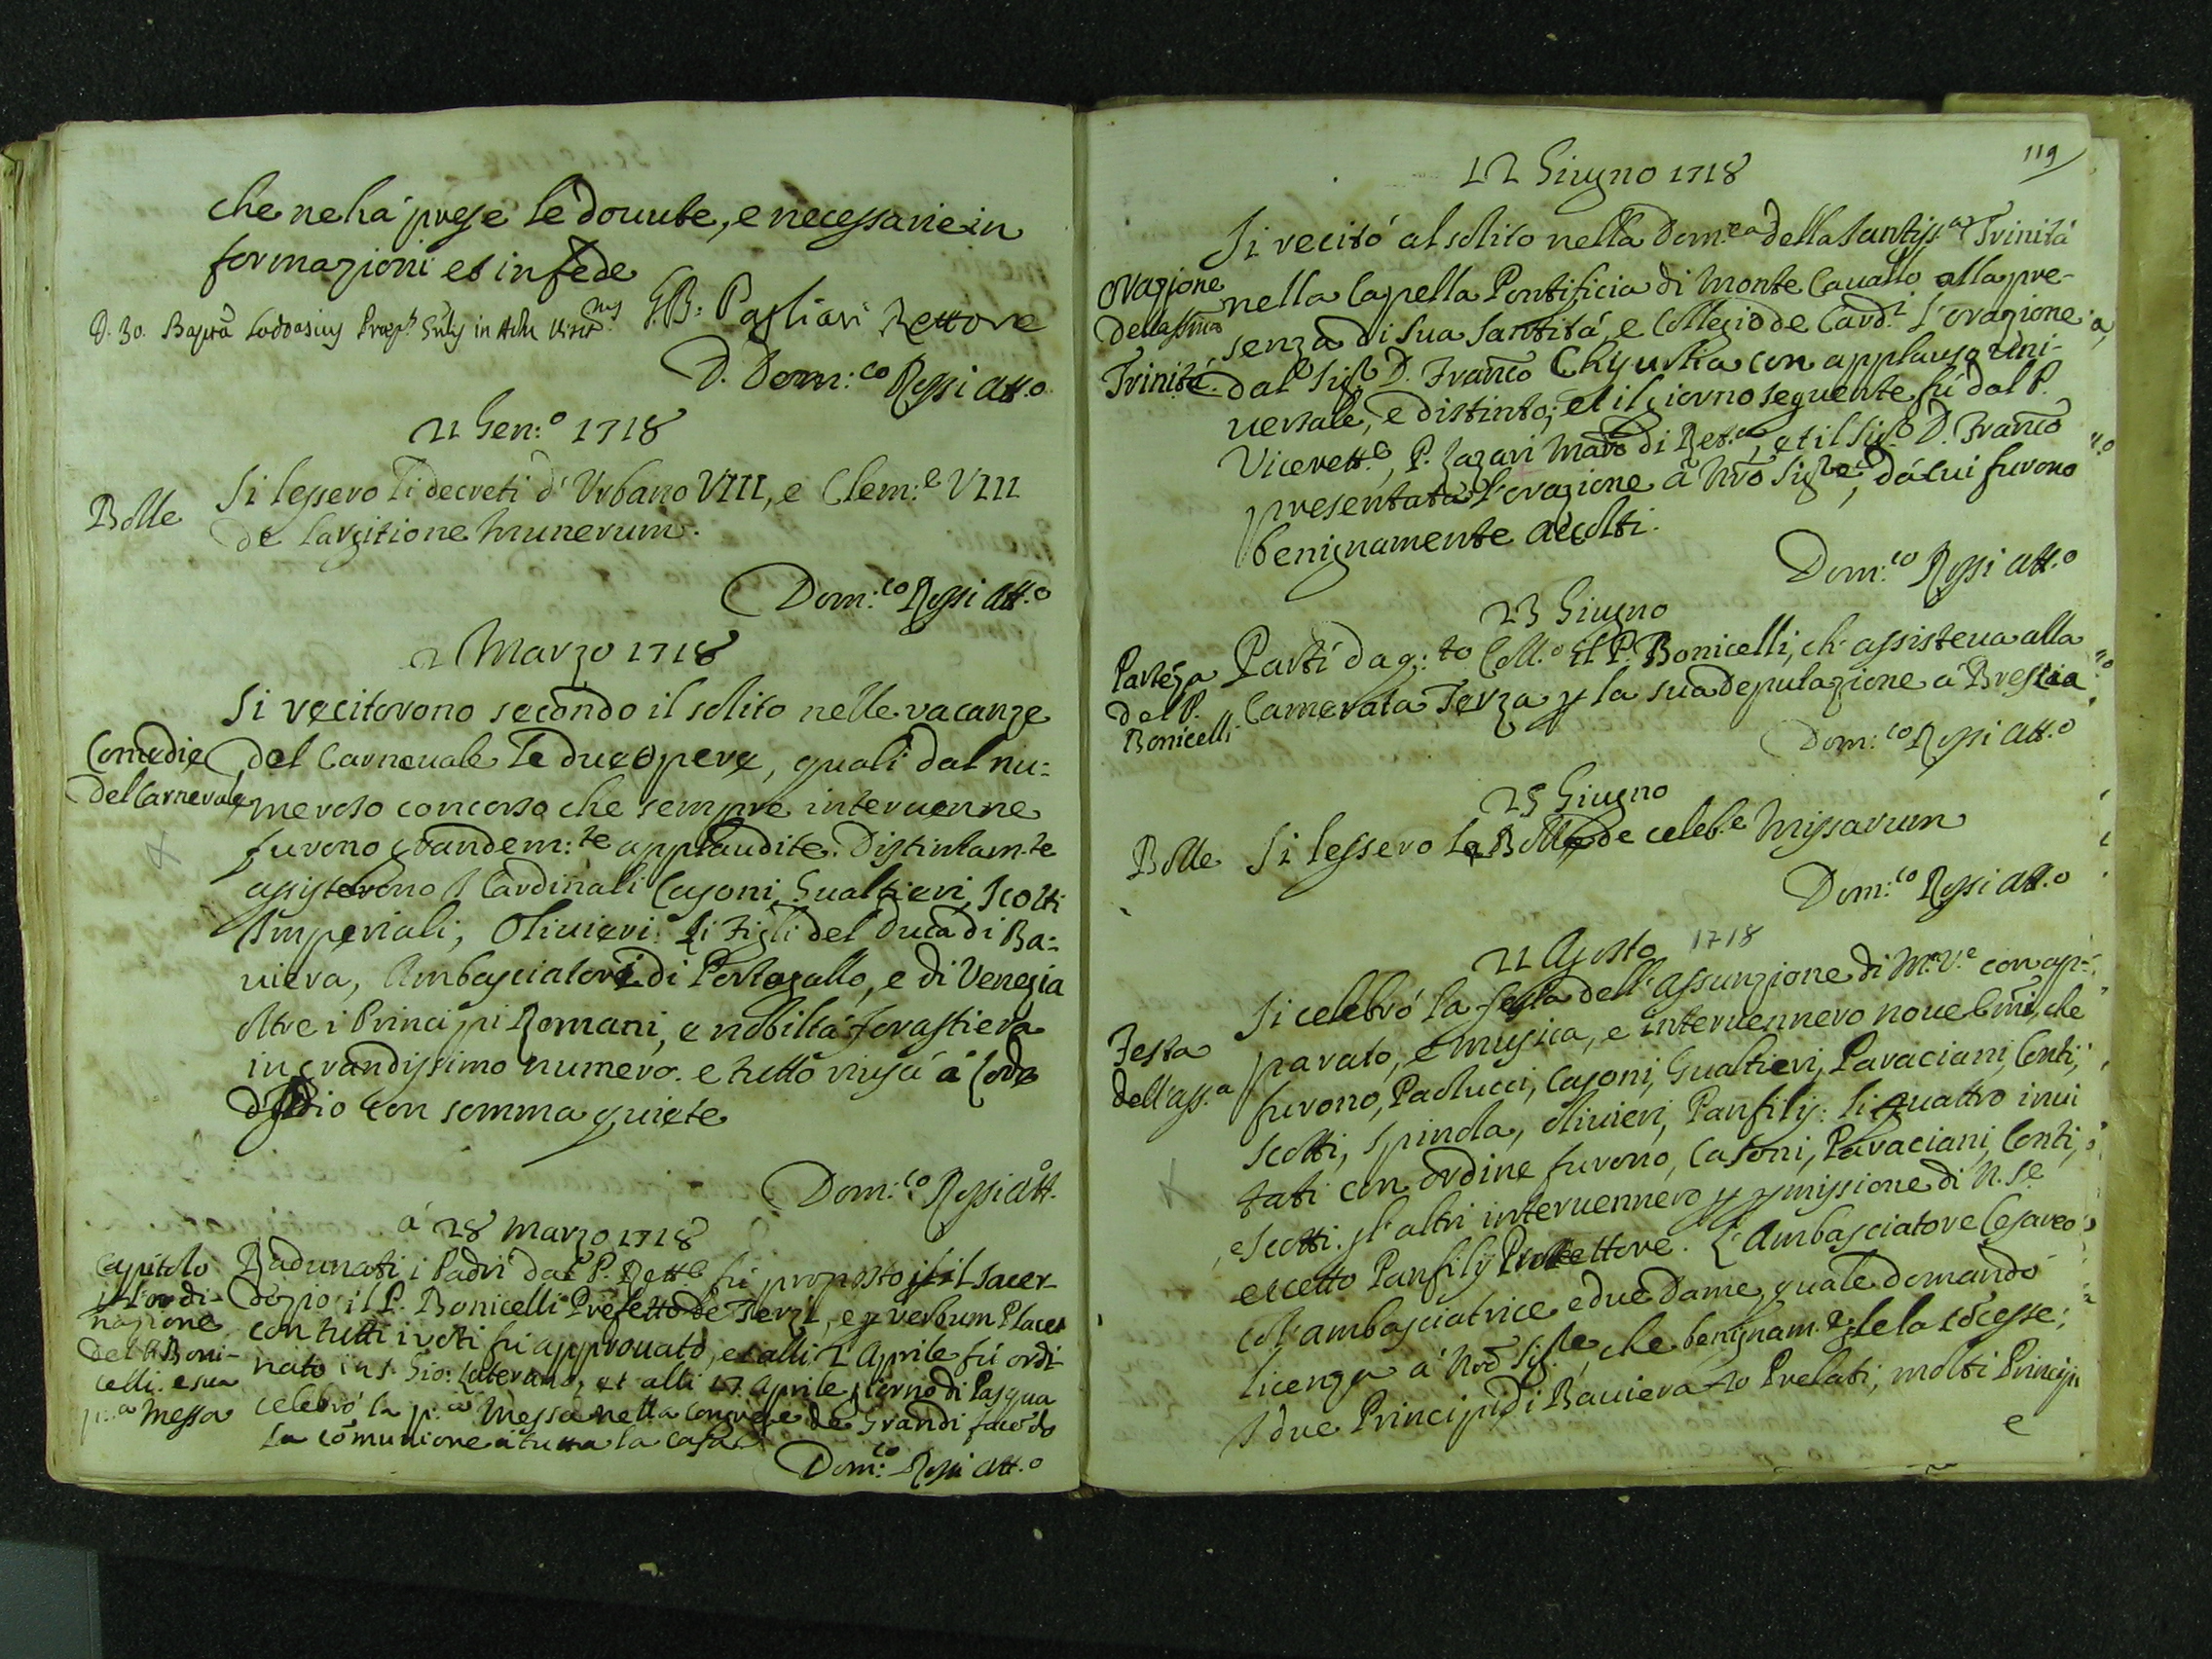 che ne há prese le douute, e necessarie in
formazioni et in fede
D. Io. Bapta Lodoasius Præp. Gñlis in Actu Visit.nis G.B: Pagliari Rettore
D. Dom:co Rossi Att.o
21 Gen:o 1718
Bolle
Si lessero li decreti d'Vrbano VIII, e Clem:e VIII
de largitione munerum.
Dom:co Rossi Att.o
2 Marzo 1718
Comedie
del Carnevale
Si recitorono secondo il solito nelle vacanze
del Carneuale le due opere, quali dal nu:
meroso concorso che sempre interuenne
furono grandem:te applaudite. Distintam.te
assisterono i Cardinali Casoni, Gualtieri, Scotti
Imperiali, Oliuieri. Li Figli del Duca di Ba:
uiera, Ambasciatori di Portogallo, e di Venezia
oltre i Principi Romani, e nobiltá forastiera
in grandissimo numero. e tutto riuscí á lode
di Dio con somma quiete
Dom:co Rossi Att.o
á 28 Marzo 1718
Capitolo
p l'ordi-
nazione
del P. Boni-
celli. e sua
p.a Messa
Radunati i Padri dal P. Rett.e fú proposto p il Sacer-
dozio il P. Bonicelli Prefetto de Terzi, e p verbum Placet
con tutti i voti fú approuato, et alli 2 Aprile fú ordi-
nato in S. Gio: Laterano, et alli 17 Aprile giorno di Pasqua
celebró la p.a Messa nella Congreg.e de Grandi facẽdo
la cõmunione á tutta la casa
Dom:co Rossi Att.o
119
12 Giugno 1718
Orazione
della SSma
Trinitá.
Si recitó al solito nella Dom.ca della Santiss.a Trinitá
nella Capella Pontificia di Monte Cauallo alla pre-
senza di Sua Santitá, e Collegio de Card.i l'orazione
dal Sig.e D. Franco Chyurlia con applauso vni-
uersale, e distinto; et il giorno seguente fú dal P.
Vicerett.e, P. Lazari Mãro di Ret.ca, et il Sig.e D. Franco
presentata l'orazione á Nro Sig.re, dá lui furono
benignamente accolti.
Dom:co Rossi Att.o
23 Giugno
Partẽza
del P.
Bonicelli
Partí da q:to Coll.o il P. Bonicelli, ch'assisteua alla
Camerata Terza p la sua deputazione á Brescia
Dom:co Rossi Att.o
25 Giugno
Bolle
Si lessero la Bolla de celeb.e Missarum
Dom:co Rossi Att.o
21 Agosto 1718
Festa
dell'ass.a
Si celebró la festa dell'Assunzione di M.V.e con ap-
parato, e musica, e interuennero noue Emi, che
furono, Paolucci, Casoni, Gualtieri, Paraciani, Conti,
Scotti, Spinola, Oliuieri, Panfilij: li quattro inui
tati con ordine furono, Casoni, Paraciani, Conti,
e Scotti. gl'altri interuennero p pmissione di N. Se
eccetto Panfilij Protettore. L'Ambasciatore Cesareo
coll'ambasciatrice e due Dame, quale domandó
licenza á Nrõ Sig.re, che benignam.e gle la cõcesse;
I due Principi di Bauiera 20 Prelati, molti Principi
e